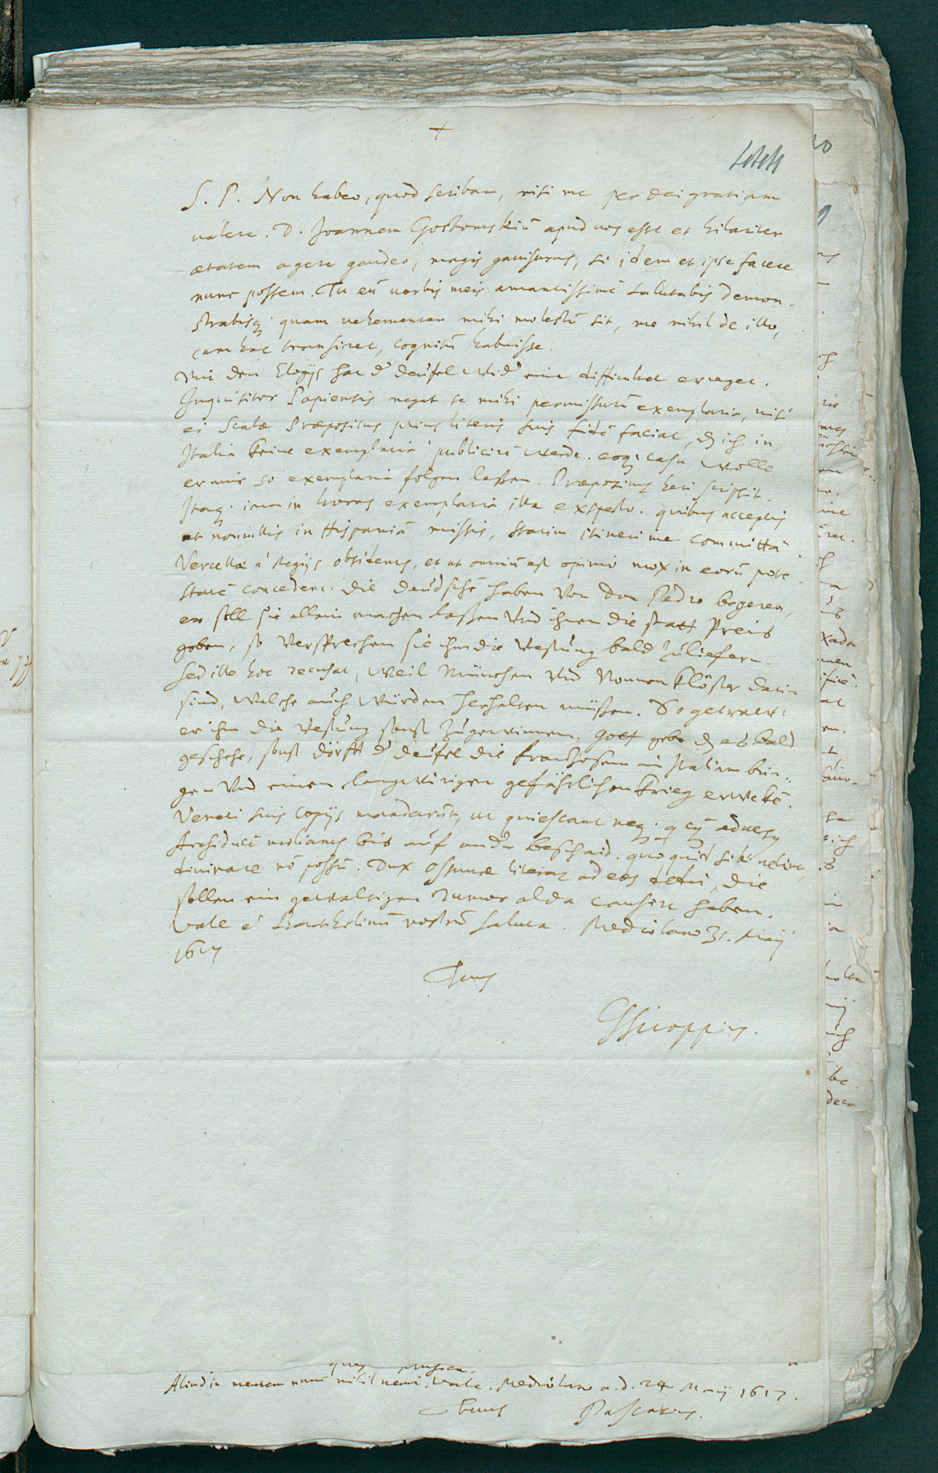 +
444
S. P. Non habeo, quod scribam, nisi me per dei gratiam
valere. D. Joannem Gostomskiū apud vos esse et hilariter
ætatem agere gaudeo, magis gavisurus, si idem et ipse facere
nunc possem. Tu eū verbis meis amantissimè salutabis demon-
strabisq. quam vehementer mihi molestū sit, me nihil de illo,
cum hac transiret, cognitū habuisse.
Mit den Elogijs hat d' deufel wid' ein difficultet erreget.
Inquisitor Papiensis negat se mihi permissurū exemplaria, nisi
ei Scalæ Præpositus prius literis suis fidē faciat, dz ich in
Italia keine exemplaria publiciren werde. eoq. casu wolle
er mir 50 exemplaria folgen lassen. Præpositus heri scripsit.
Itaq. iam in horas exemplaria illa exspecto. quibus acceptis
et nonnullis in Hispaniā missis, statim itineri me committā
Vercellæ à Regijs obsidentur, et ut omniū est opinio mox in eorū pote-
statē concedent. Die deudsche haben von Don Pedro begeret,
er soll sie allein machen lassen und ihnen die statt Preis
geben, so versprechen sie ihm die Vestung bald zu liefern.
Sed ille hoc recusat, weil München und Nonnen Klöster darin
sind, welche auch würden herhalten müssen. So getrawet
er ihm die Vestung sonst zugewinnen. Gott gebe dz es bald
geschehe, sonst dörfft d' deufel die Frantzosen in Italiam brin-
gen und einen langwirigen gefährlichen krieg erweckē.
Veneti suis copijs mandarūt, ut quiescant neq. qcq̄ adversus
Archiducē moliantur bis auf ander bescheid. quo quid sibi velint,
divinare nō possū. Dux Ossunæ literas ad eos dedit, die
sollen ein gewaltigen rumor alda causirt haben.
Vale et vostrū saluta. Mediolano 31. Maij
1617.
Tuus
GScioppius.
Aliud in mentem nunc nihil venit. Vale. Mediolano a. d. 24 Maij 1617.
Tuus